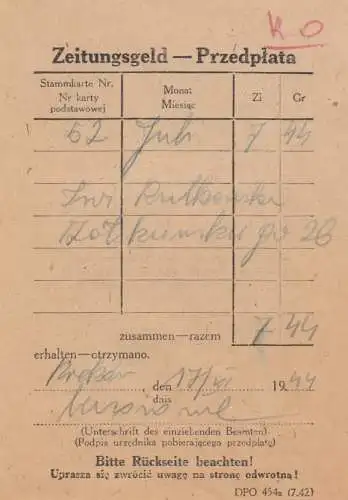 K O
Zeitungsgeld — Przedpłata
Stammkarte Nr.
Nr karty
podstawowej
Monat
Miesiąc
Zł
Gr
62 Juli 7 44
Rutkowski
26
zusammen—razem 7 44
erhalten—otrzymano.
Krakau, den 17/VI 1944
dnia
(Unterschrift des einziehenden Beamten)
(Podpis urzędnika pobierającego przedpłatę)
Bitte Rückseite beachten!
Uprasza się zwrócić uwagę na stronę odwrotną!
DPO 454a (7.42)